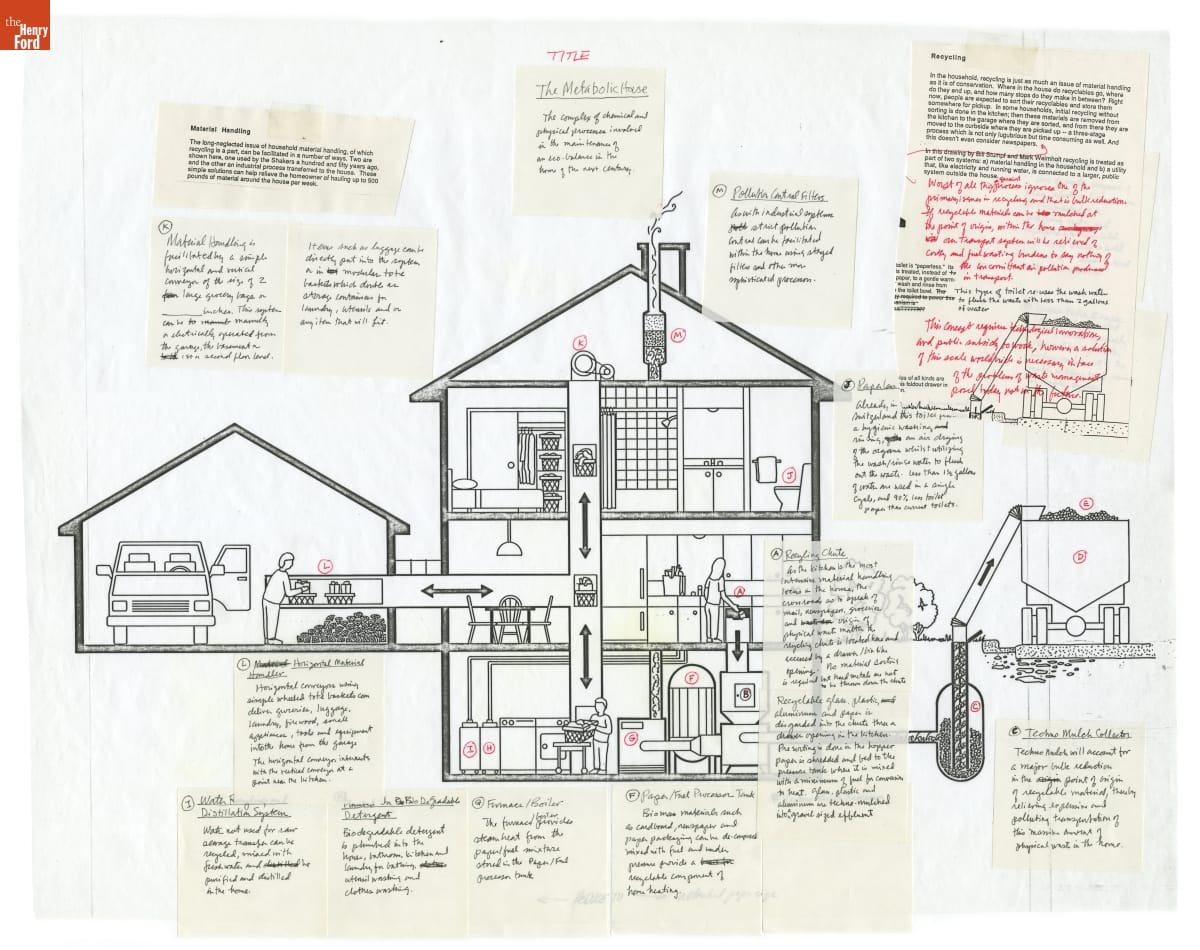 the
Henry
Ford
TITLE
The Metabolic House
The complex of chemical and
physical processes involved
in the maintenance of
an eco-balance in the
home of the next century.
Material Handling
The long-neglected issue of household material handling, of which
recycling is a part, can be facilitated in a number of ways. Two are
shown here, one used by the Shakers a hundred and fifty years ago,
and the other an industrial process transferred to the house. These
simple solutions can help relieve the homeowner of hauling up to 500
pounds of material around the house per week.
K
Material Handling is
facilitated by a simple
horizontal and vertical
conveyor of the size of 2
large grocery bags or
inches. This system
can be manually
or electrically operated from
the garage, the basement or
second floor level.
Items such as luggage can be
directly put into the system
or in modular tote
baskets which double as
storage containers for
laundry, utensils and or
any item that will fit.
M Pollution Control Filters
As with industrial systems
strict pollution
control can be facilitated
within the home using staged
filters and other more
sophisticated processes.
Recycling
In the household, recycling is just as much an issue of material handling
as it is of conservation. Where in the house do recyclables go, where
do they end up, and how many stops do they make in between? Right
now, people are expected to sort their recyclables and store them
somewhere for pickup. In some households, initial recycling without
sorting is done in the kitchen; then these materials are removed from
the kitchen to the garage where they are sorted, and from there they are
moved to the curbside where they are picked up -- a three-stage
process which is not only lugubrious but time consuming as well. And
this doesn't even consider newspapers.
In this drawing by Bill Stumpf and Mark Weinholt recycling is treated as
part of two systems: a) material handling in the household and b) a utility
that, like electricity and running water, is connected to a larger, public
system outside the house.
Worst of all this process ignores one of the
primary issues in recycling and that is bulk reduction
If recyclable materials can be mulched at
the point of origin, within the home
our transport system will be relieved of
costly and fuel wasting burdens to say nothing of
the concomitant air pollution produced
in transport.
toilet is "paperless." Its
is treated, instead of
paper, to a gentle warm-
wash and rinse from
the toilet bowl. The
This type of toilet re-uses the wash water
to flush the waste with less than 2 gallons
of water
This concept requires technological innovation,
and public subsidy to work, however a solution
of this scale worldwide is necessary in face
of the problems of waste management
posed today not in the future.
of all kinds are
foldout drawer in
J Paperless
Already, in
Switzerland this toilet
a hygienic washing and
rinsing, an air drying
of the organs whilst utilizing
the wash/rinse water to flush
out the waste. Less than 1½ gallons
of water are used in a single
cycle, and 90% less toilet
paper than current toilets.
K
M
J
L
A
E
D
A Recycling Chute
As the kitchen is the most
intensive material handling
locus in the home, the
crossroads so to speak of
mail, newspapers, groceries
and origin of
physical waste matter the
recycling chute is located here and
accessed by a drawer/bin like
opening. No material sorting
is required but hard metals are not
to be thrown down the chute
Recyclable glass, plastic,
aluminum and paper is
discarded into the chute thru a
drawer opening in the kitchen.
Pre sorting is done in the hopper
paper is shredded and fed to the
pressure tank where it is mixed
with a minimum of fuel for conversion
to heat. Glass, plastic and
aluminum are techno-mulched
into gravel sized effluent
F
B
G
I
H
C
L Horizontal Material
Handler
Horizontal conveyors using
simple wheeled tote baskets can
deliver groceries, luggage,
laundry, firewood, small
appliances, tools and equipment
into the home from the garage
The horizontal conveyor intersects
with the vertical conveyor at a
point near the kitchen.
C Techno Mulch Collector
Techno Mulch will account for
a major bulk reduction
in the point of origin
of recyclable material, thereby
relieving expensive and
polluting transportation of
this massive amount of
physical waste in the home.
I Water
Distillation System
Water not used for raw
sewage transfer can be
recycled, mixed with
fresh water and be
purified and distilled
in the home.
Plumbed In Bio Degradable
Detergent
Biodegradable detergent
is plumbed into the
house, bathroom, kitchen and
laundry for bathing,
utensil washing and
clothes washing.
G Furnace/Boiler
The furnace/boiler provides
steam heat from the
paper/fuel mixture
stored in the Paper/Fuel
processor tank
F Paper/Fuel Processor Tank
Bio mass materials such
as cardboard, newspaper and
paper packaging can be de-composed
mixed with fuel and under
pressure provide a
recyclable component of
home heating.